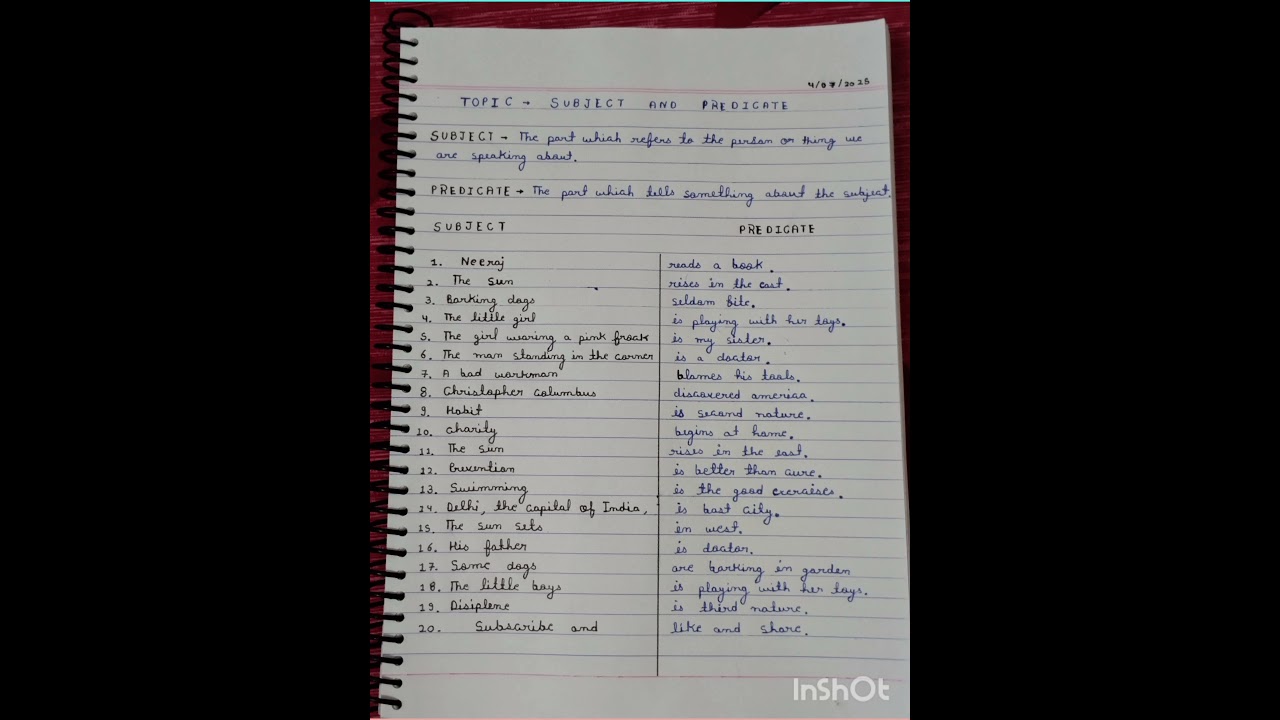 4/07/2025
TOPIC → SUBJECT AND PREDICATE
SUBJECT → The part which refers to the person or thing we
are speaking about.
PREDICATE → The part which tells something about the subject.
SUBJECT PREDICATE
1. Neeraj reads a book.
2. The sun rises in the east.
3. Barking dogs seldom bite.
4. The little girl is playing with her toys.
5. The girl wearing a pink frock is my sister.
6. The man standing in the corner is a doctor.
7. A bad workman blames his tools.
8. Christopher columbus discovered america.
9. Habit is second nature.
10. Charity begins at home.
11. The sun rises in the east.
12. is better than cure.
13. Swimming is the good exercises.
14. Delhi, the capital of India, is city.
15. The sun sets in west.
16. His father is doctor.
17. Some dogs are barking in garden
18. The little boys is playing with her toys.
19. Disiplene is third nature.
20. Subscribe and like and share.
InShOt